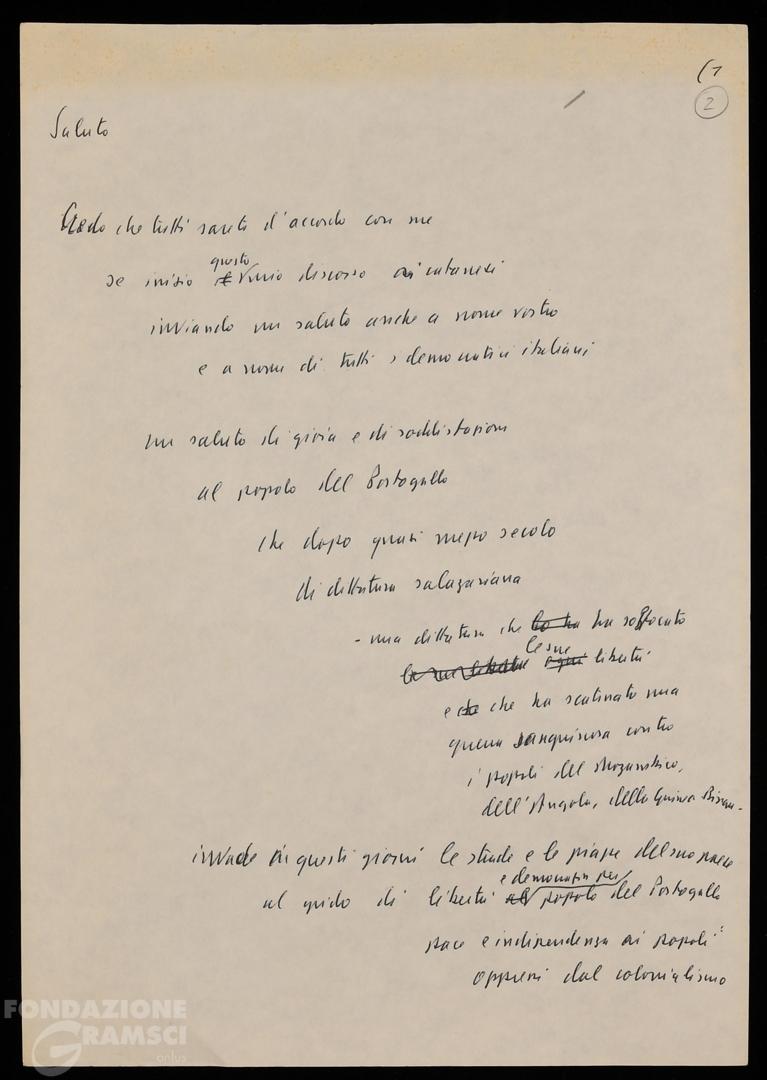 (1
2
Saluto
Credo che tutti sarete d'accordo con me
questo
se inizio il mio discorso ai catanesi
inviando un saluto anche a nome vostro
e a nome di tutti i democratici italiani
un saluto di gioia e di soddisfazione
al popolo del Portogallo
che dopo quasi mezzo secolo
di dittatura salazariana
- una dittatura che lo ha ha soffocato
le sue
le sue libertà ogni libertà
e che ha scatenato una
guerra sanguinosa contro
i popoli del Mozambico,
dell'Angola, della Guinea Bissau -
invade in questi giorni le strade e le piazze del suo paese
e democrazia per
al grido di libertà al popolo del Portogallo
pace e indipendenza ai popoli
oppressi dal colonialismo
FONDAZIONE
GRAMSCI
onlus